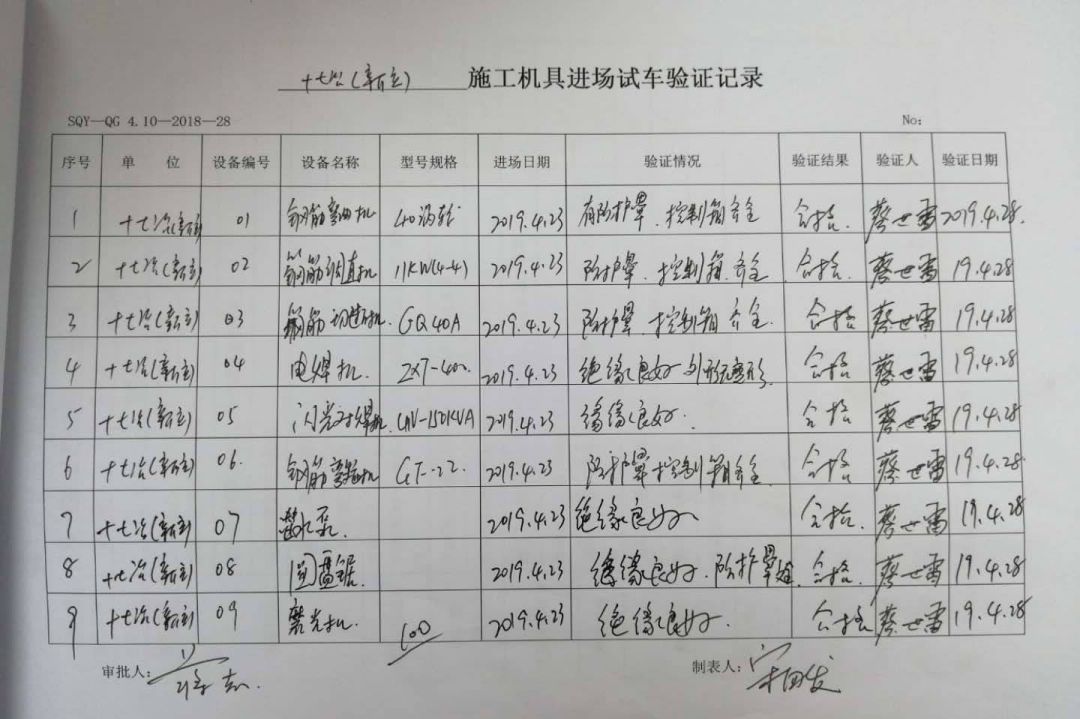 十七冶(新立) 施工机具进场试车验证记录
SQY—QG 4.10—2018—28 No:
序号 单 位 设备编号 设备名称 型号规格 进场日期 验证情况 验证结果 验证人 验证日期
1 十七冶(新立) 01 钢筋弯曲机 2019.4.23 有防护罩、控制箱齐全 合格. 蔡世雷 2019.4.28
2 十七冶(新立) 02 钢筋调直机 11KW(4-4) 2019.4.23 防护罩、控制箱齐全 合格. 蔡世雷 19.4.28
3 十七冶(新立) 03 钢筋切断机. GQ40A 2019.4.23 防护罩、控制箱齐全. 合格 蔡世雷 19.4.28
4 十七冶(新立) 04 电焊机. ZX7-400 2019.4.23 绝缘良好 外形无变形. 合格 蔡世雷 19.4.28
5 十七冶(新立) 05 闪光对焊机. UNV-150KVA 2019.4.23 绝缘良好. 合格 蔡世雷 19.4.28
6 十七冶(新立) 06. GT-22 2019.4.23 防护罩控制箱齐全 合格. 蔡世雷 19.4.28
7 十七冶(新立) 07 2019.4.23 绝缘良好 合格. 蔡世雷 19.4.28
8 十七冶(新立) 08 圆盘锯. 2019.4.23 绝缘良好.防护罩 合格. 蔡世雷 19.4.28
9 十七冶(新立) 09 磨光机. 100 2019.4.23 绝缘良好. 合格 蔡世雷 19.4.28
审批人: 制表人: